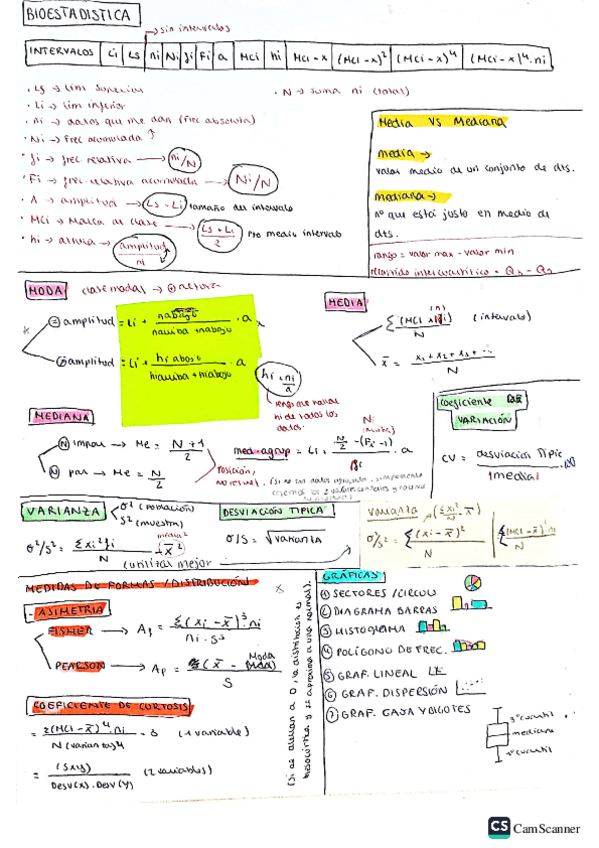 BIOESTADISTICA
→ sin intervalos
INTERVALOS | Li | Ls | ni | Ni | fi | Fi | a | MCi | hi | MCi - x | (MCi - x)² | (MCi - x)⁴ | (MCi - x)⁴.ni
· Ls → lim superior
· N → suma ni (total)
· Li → lim inferior
· ni → datos que me dan (frec absoluta)
· Ni → frec acumulada
· fi → frec relativa → ni/N
· Fi → frec relativa acumulada → Ni/N
· A → amplitud → Ls - Li tamaño del intervalo
· MCi → Marca de clase → Ls + Li / 2 Pto medio intervalo
· hi → altura → amplitud / ni
Media VS Mediana
media →
valor medio de un conjunto de dts.
mediana →
nº que está justo en medio de
dts.
rango = valor max - valor min
recorrido intercuartílico = Q₃ - Q₁
MODA clase modal → ⊕ altura
= amplitud = Li + nabajo / narriba + nabajo · a
≠ amplitud = Li + hi abajo / hiarriba + hiabajo · a
hi = ni / a
tengo que hallar
hi de todos los
datos.
MEDIA
Σ (MCi · ni) / N (intervalo)
x̄ = x₁ + x₂ + x₃ + ... / N
MEDIANA
N impar → Me = N + 1 / 2
N par → Me = N / 2
posición,
no resul.
med. agrup = Li + N/2 - (Fi - 1) / · a
coeficiente
VARIACIÓN
CV = desviación Típic / |media| · 100
VARIANZA
σ² (población)
S² (muestra)
σ²/s² = Σ xi² fi / N - (x̄²)
media²
(utilizar mejor
DESVIACIÓN TIPICA
σ/S = √varianza
varianza
σ²/s² = Σ (xi - x̄)² / N
Σ (MCi - x̄)² ni / N
MEDIDAS DE FORMAS / DISTRIBUCIÓN
- ASIMETRIA
FISHER → Af = Σ (xi - x̄)³ · ni / ni · s³
PEARSON → Ap = (x̄ - Moda) / S
COEFICIENTE DE CURTOSIS
= Σ (MCi - x̄)⁴ · ni / N (varianza)⁴ - 3 (1 variable)
= (Sxy) / Desv(x) . Desv(y) (2 variables)
(Si se acercan a 0, la distribución es
mesocúrtica y se aproxima a una normal).
GRÁFICAS
① SECTORES / CIRCU
② DIAGRAMA BARRAS
③ HISTOGRAMA
④ POLÍGONO DE FREC.
⑤ GRAF. LINEAL
⑥ GRAF. DISPERSIÓN
⑦ GRAF. CAJA Y BIGOTES
3º cuartil
mediana
1º cuartil
CS CamScanner